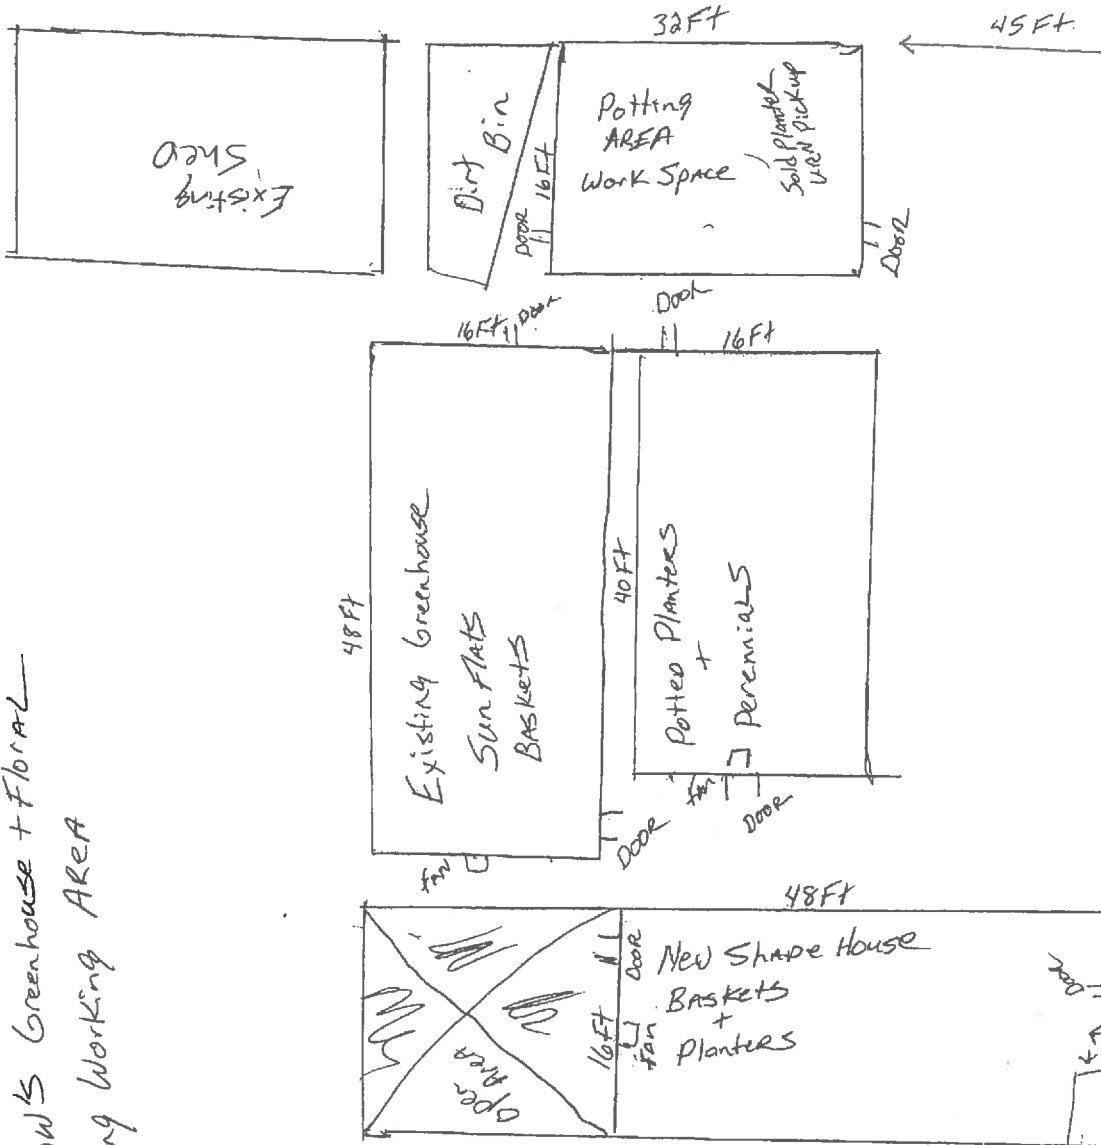 32Ft
45Ft.
Existing
Shed
Dirt
Bin
DOOR
16Ft
Potting
AREA
Work Space
Sold Planter
Pickup
DOOR
16Ft
DOOR
DOOR
16Ft
48Ft
Existing Greenhouse
Sun Flats
BASKets
fan
DOOR
40Ft
Potted Planters
+
PerenniaLS
fan
DOOR
48Ft
Open
AreA
DOOR
16Ft
fan
New ShaDe House
BASKetS
+
Planters
Door
Greenhouse + FlorAL
Working AReA